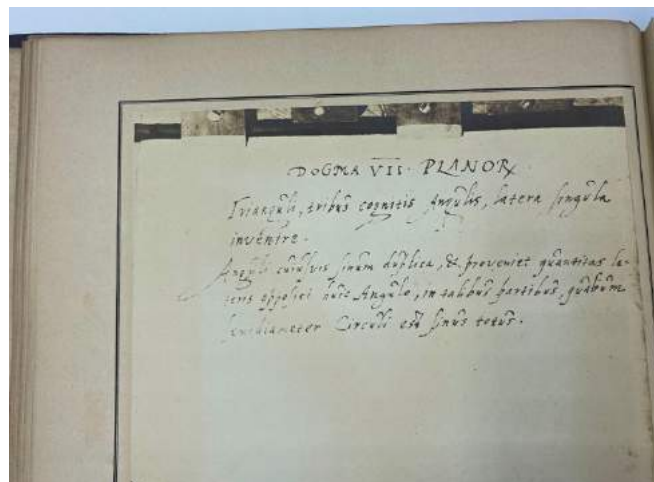 DOGMA VII. PLANOR℞.
Trianguli, tribus cognitis Angulis, latera singula
invenire.
Anguli cuiusvis sinum duplica, & proveniet quantitas la-
teris oppositi huic Angulo, in talibus partibus, quarum
semidiameter Circuli est sinus totus.